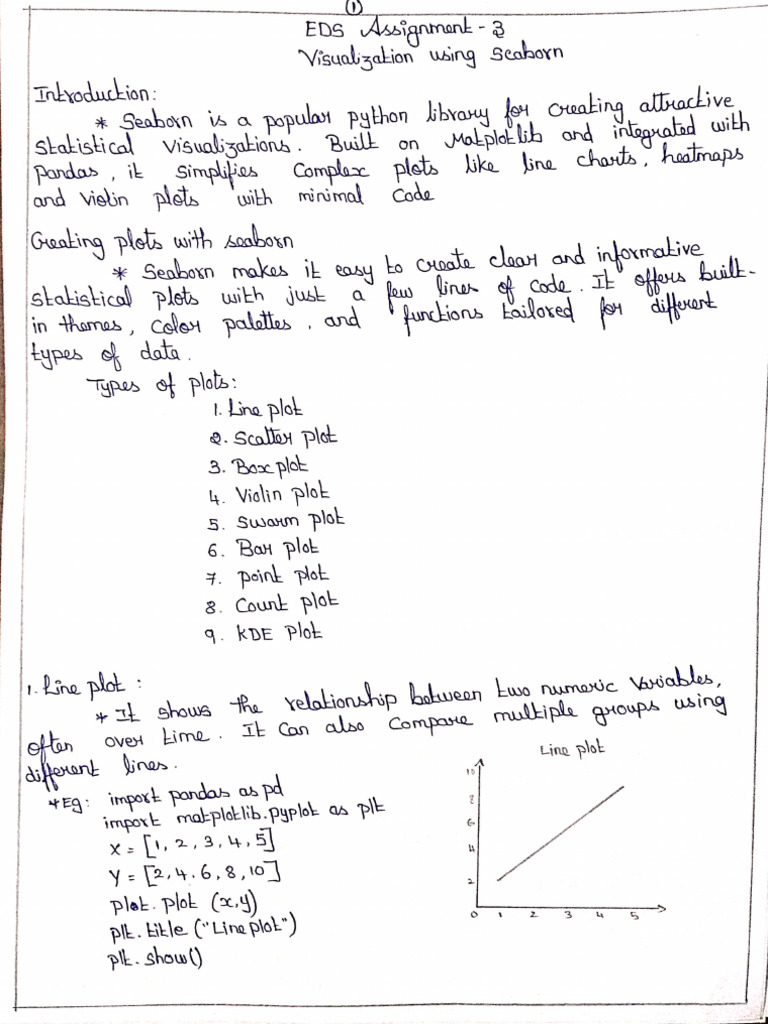 ①
EDS Assignment - 3
Visualization using Seaborn
Introduction:
* Seaborn is a popular python library for creating attractive
Statistical Visualizations. Built on Matplotlib and integrated with
Pandas, it simplifies Complex plots like line charts, heatmaps
and violin plots with minimal code
Creating plots with seaborn
* Seaborn makes it easy to create clear and informative
Statistical plots with just a few lines of code. It offers built-
in themes, color palettes, and functions tailored for different
types of data.
Types of plots:
1. Line plot
2. Scatter plot
3. Box plot
4. Violin plot
5. Swarm plot
6. Bar plot
7. point plot
8. Count plot
9. KDE plot
1. Line plot :
* It shows the relationship between two numeric variables,
often over time. It Can also Compare multiple groups using
different lines.
* Eg: import pandas as pd
import matplotlib.pyplot as plt
x = [1, 2, 3, 4, 5]
y = [2, 4, 6, 8, 10]
plot. plot (x,y)
plt. title ("Line plot")
plt. show()
Line plot
10
8
6
4
2
0 1 2 3 4 5